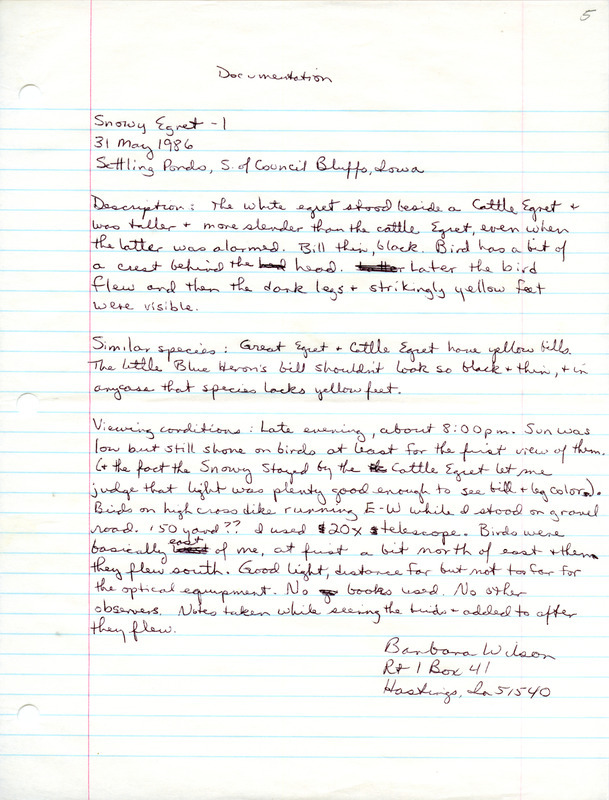 5
Documentation
Snowy Egret - 1
31 May 1986
Settling Ponds, S. of Council Bluffs, Iowa
Description: The white egret stood beside a Cattle Egret +
was taller + more slender than the cattle Egret, even when
the latter was alarmed. Bill thin, black. Bird has a bit of
a crest behind the head. Later the bird
flew and then the dark legs + strikingly yellow feet
were visible.
Similar species: Great Egret + Cattle Egret have yellow bills.
The little Blue Heron's bill shouldn't look so black + thin, + in
anycase that species lacks yellow feet.
Viewing conditions: Late evening, about 8:00 pm. Sun was
low but still shone on birds at least for the first view of them.
(+ the fact the Snowy stayed by the Cattle Egret let me
judge that light was plenty good enough to see bill + leg colors).
Birds on high cross dike running E-W while I stood on gravel
road. 150 yard?? I used 20x telescope. Birds were
basically east of me, at first a bit north of east + then
they flew south. Good light, distance far but not too far for
the optical equipment. No books used. No other
observers. Notes taken while seeing the birds + added to after
they flew.
Barbara Wilson
Rt 1 Box 41
Hastings, Ia 51540